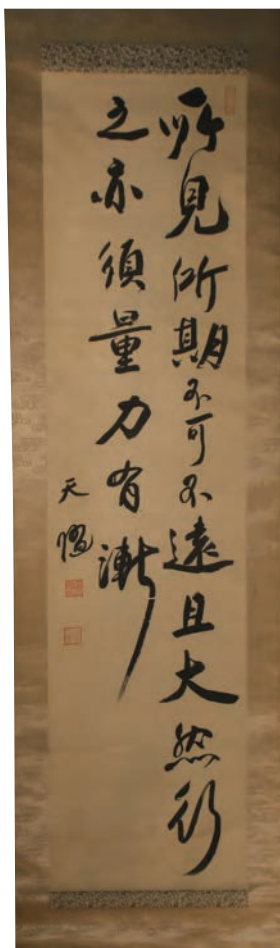 所見所期不可不遠且大然行
之亦須量力有漸
天愠